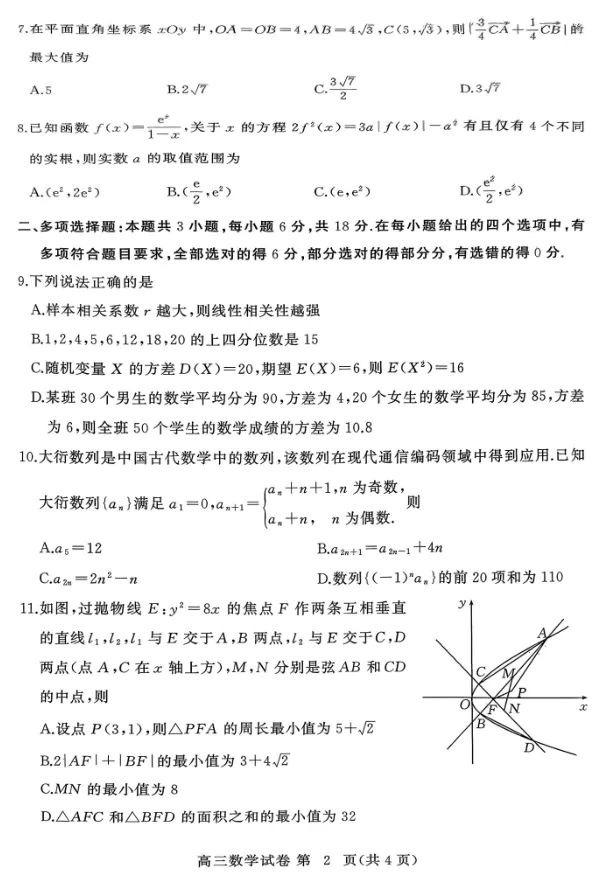 7.在平面直角坐标系 xOy 中,OA=OB=4,AB=4√3,C(5,√3),则|3/4 CA→+1/4 CB→|的
最大值为
A.5 B.2√7 C.3√7/2 D.3√7
8.已知函数 f(x)=e^x/(1-x),关于 x 的方程 2f²(x)=3a|f(x)|-a² 有且仅有 4 个不同
的实根,则实数 a 的取值范围为
A.(e²,2e²) B.(e/2,e²) C.(e,e²) D.(e²/2,e²)
二、多项选择题:本题共 3 小题,每小题 6 分,共 18 分.在每小题给出的四个选项中,有
多项符合题目要求,全部选对的得 6 分,部分选对的得部分分,有选错的得 0 分.
9.下列说法正确的是
A.样本相关系数 r 越大,则线性相关性越强
B.1,2,4,5,6,12,18,20 的上四分位数是 15
C.随机变量 X 的方差 D(X)=20,期望 E(X)=6,则 E(X²)=16
D.某班 30 个男生的数学平均分为 90,方差为 4,20 个女生的数学平均分为 85,方差
为 6,则全班 50 个学生的数学成绩的方差为 10.8
10.大衍数列是中国古代数学中的数列,该数列在现代通信编码领域中得到应用.已知
大衍数列{aₙ}满足 a₁=0,aₙ₊₁={aₙ+n+1,n 为奇数, aₙ+n, n 为偶数. 则
A.a₅=12 B.a₂ₙ₊₁=a₂ₙ₋₁+4n
C.a₂ₙ=2n²-n D.数列{(-1)ⁿaₙ}的前 20 项和为 110
11.如图,过抛物线 E:y²=8x 的焦点 F 作两条互相垂直
的直线 l₁,l₂,l₁ 与 E 交于 A,B 两点,l₂ 与 E 交于 C,D
两点(点 A,C 在 x 轴上方),M,N 分别是弦 AB 和 CD
的中点,则
A.设点 P(3,1),则△PFA 的周长最小值为 5+√2
B.2|AF|+|BF|的最小值为 3+4√2
C.MN 的最小值为 8
D.△AFC 和△BFD 的面积之和的最小值为 32
y
A
C
M
P
O
F
N
x
B
D
高三数学试卷 第 2 页(共 4 页)